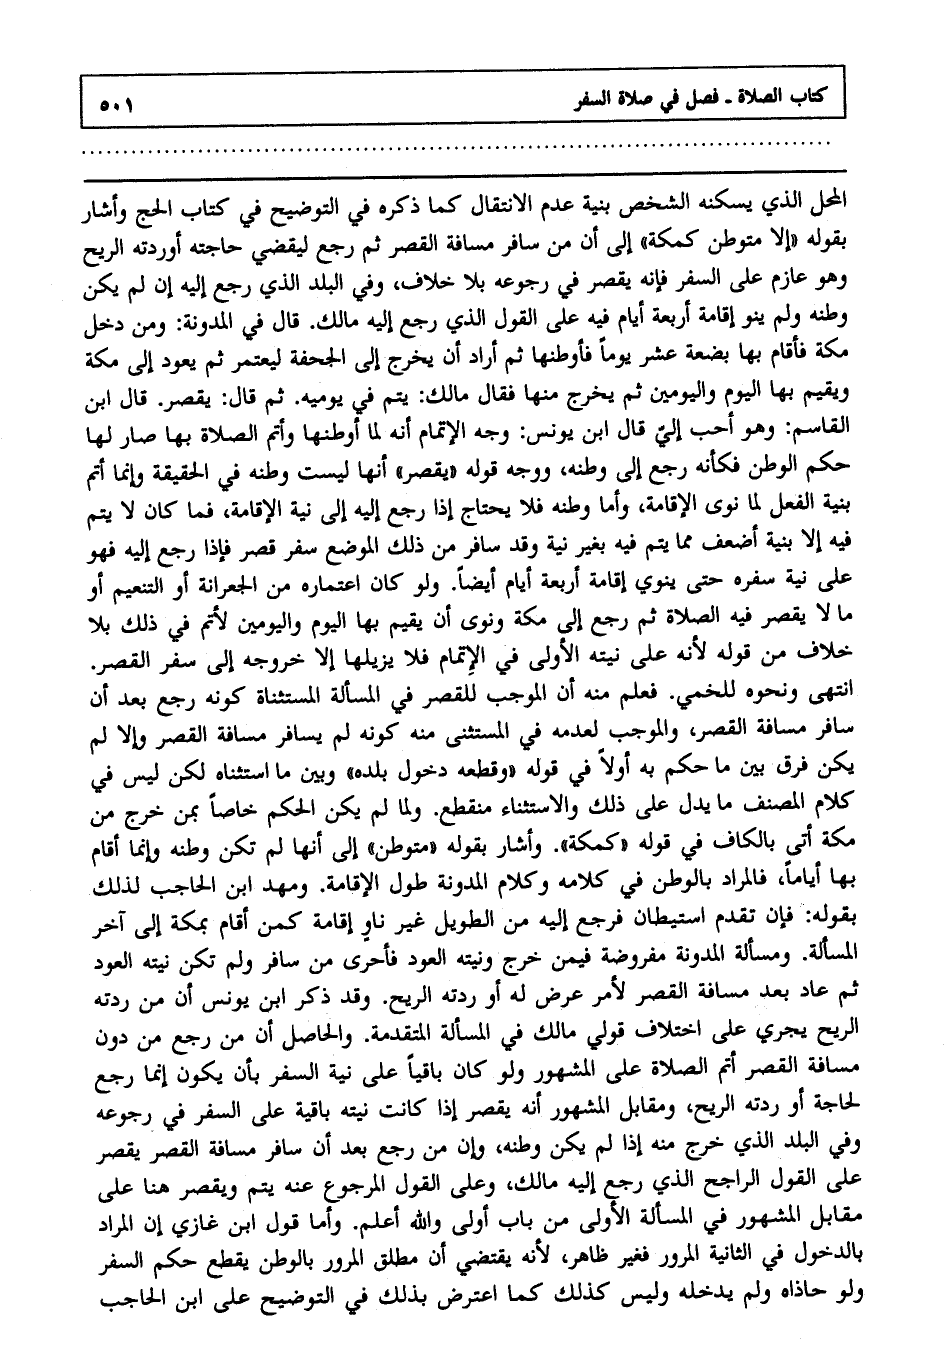 كتاب الصلاة ـ فصل في صلاة السفر ٥٠١
المحل الذي يسكنه الشخص بنية عدم الانتقال كما ذكره في التوضيح في كتاب الحج وأشار
بقوله «إلا متوطن كمكة» إلى أن من سافر مسافة القصر ثم رجع ليقضي حاجته أوردته الريح
وهو عازم على السفر فإنه يقصر في رجوعه بلا خلاف، وفي البلد الذي رجع إليه إن لم يكن
وطنه ولم ينو إقامة أربعة أيام فيه على القول الذي رجع إليه مالك. قال في المدونة: ومن دخل
مكة فأقام بها بضعة عشر يوماً فأوطنها ثم أراد أن يخرج إلى الجحفة ليعتمر ثم يعود إلى مكة
ويقيم بها اليوم واليومين ثم يخرج منها فقال مالك: يتم في يوميه. ثم قال: يقصر. قال ابن
القاسم: وهو أحب إليّ قال ابن يونس: وجه الإتمام أنه لما أوطنها وأتم الصلاة بها صار لها
حكم الوطن فكأنه رجع إلى وطنه، ووجه قوله «يقصر» أنها ليست وطنه في الحقيقة وإنما أتم
بنية الفعل لما نوى الإقامة، وأما وطنه فلا يحتاج إذا رجع إليه إلى نية الإقامة، فما كان لا يتم
فيه إلا بنية أضعف مما يتم فيه بغير نية وقد سافر من ذلك الموضع سفر قصر فإذا رجع إليه فهو
على نية سفره حتى ينوي إقامة أربعة أيام أيضاً. ولو كان اعتماره من الجعرانة أو التنعيم أو
ما لا يقصر فيه الصلاة ثم رجع إلى مكة ونوى أن يقيم بها اليوم واليومين لأتم في ذلك بلا
خلاف من قوله لأنه على نيته الأولى في الإتمام فلا يزيلها إلا خروجه إلى سفر القصر.
انتهى ونحوه للخمي. فعلم منه أن الموجب للقصر في المسألة المستثناة كونه رجع بعد أن
سافر مسافة القصر، والموجب لعدمه في المستثنى منه كونه لم يسافر مسافة القصر وإلا لم
يكن فرق بين ما حكم به أولاً في قوله «وقطعه دخول بلده» وبين ما استثناه لكن ليس في
كلام المصنف ما يدل على ذلك والاستثناء منقطع. ولما لم يكن الحكم خاصاً بمن خرج من
مكة أتى بالكاف في قوله «كمكة». وأشار بقوله «متوطن» إلى أنها لم تكن وطنه وإنما أقام
بها أياماً، فالمراد بالوطن في كلامه وكلام المدونة طول الإقامة. ومهد ابن الحاجب لذلك
بقوله: فإن تقدم استيطان فرجع إليه من الطويل غير ناوٍ إقامة كمن أقام بمكة إلى آخر
المسألة. ومسألة المدونة مفروضة فيمن خرج ونيته العود فأحرى من سافر ولم تكن نيته العود
ثم عاد بعد مسافة القصر لأمر عرض له أو ردته الريح. وقد ذكر ابن يونس أن من ردته
الريح يجري على اختلاف قولي مالك في المسألة المتقدمة. والحاصل أن من رجع من دون
مسافة القصر أتم الصلاة على المشهور ولو كان باقياً على نية السفر بأن يكون إنما رجع
لحاجة أو ردته الريح، ومقابل المشهور أنه يقصر إذا كانت نيته باقية على السفر في رجوعه
وفي البلد الذي خرج منه إذا لم يكن وطنه، وإن من رجع بعد أن سافر مسافة القصر يقصر
على القول الراجح الذي رجع إليه مالك، وعلى القول المرجوع عنه يتم ويقصر هنا على
مقابل المشهور في المسألة الأولى من باب أولى والله أعلم. وأما قول ابن غازي إن المراد
بالدخول في الثانية المرور فغير ظاهر، لأنه يقتضي أن مطلق المرور بالوطن يقطع حكم السفر
ولو حاذاه ولم يدخله وليس كذلك كما اعترض بذلك في التوضيح على ابن الحاجب